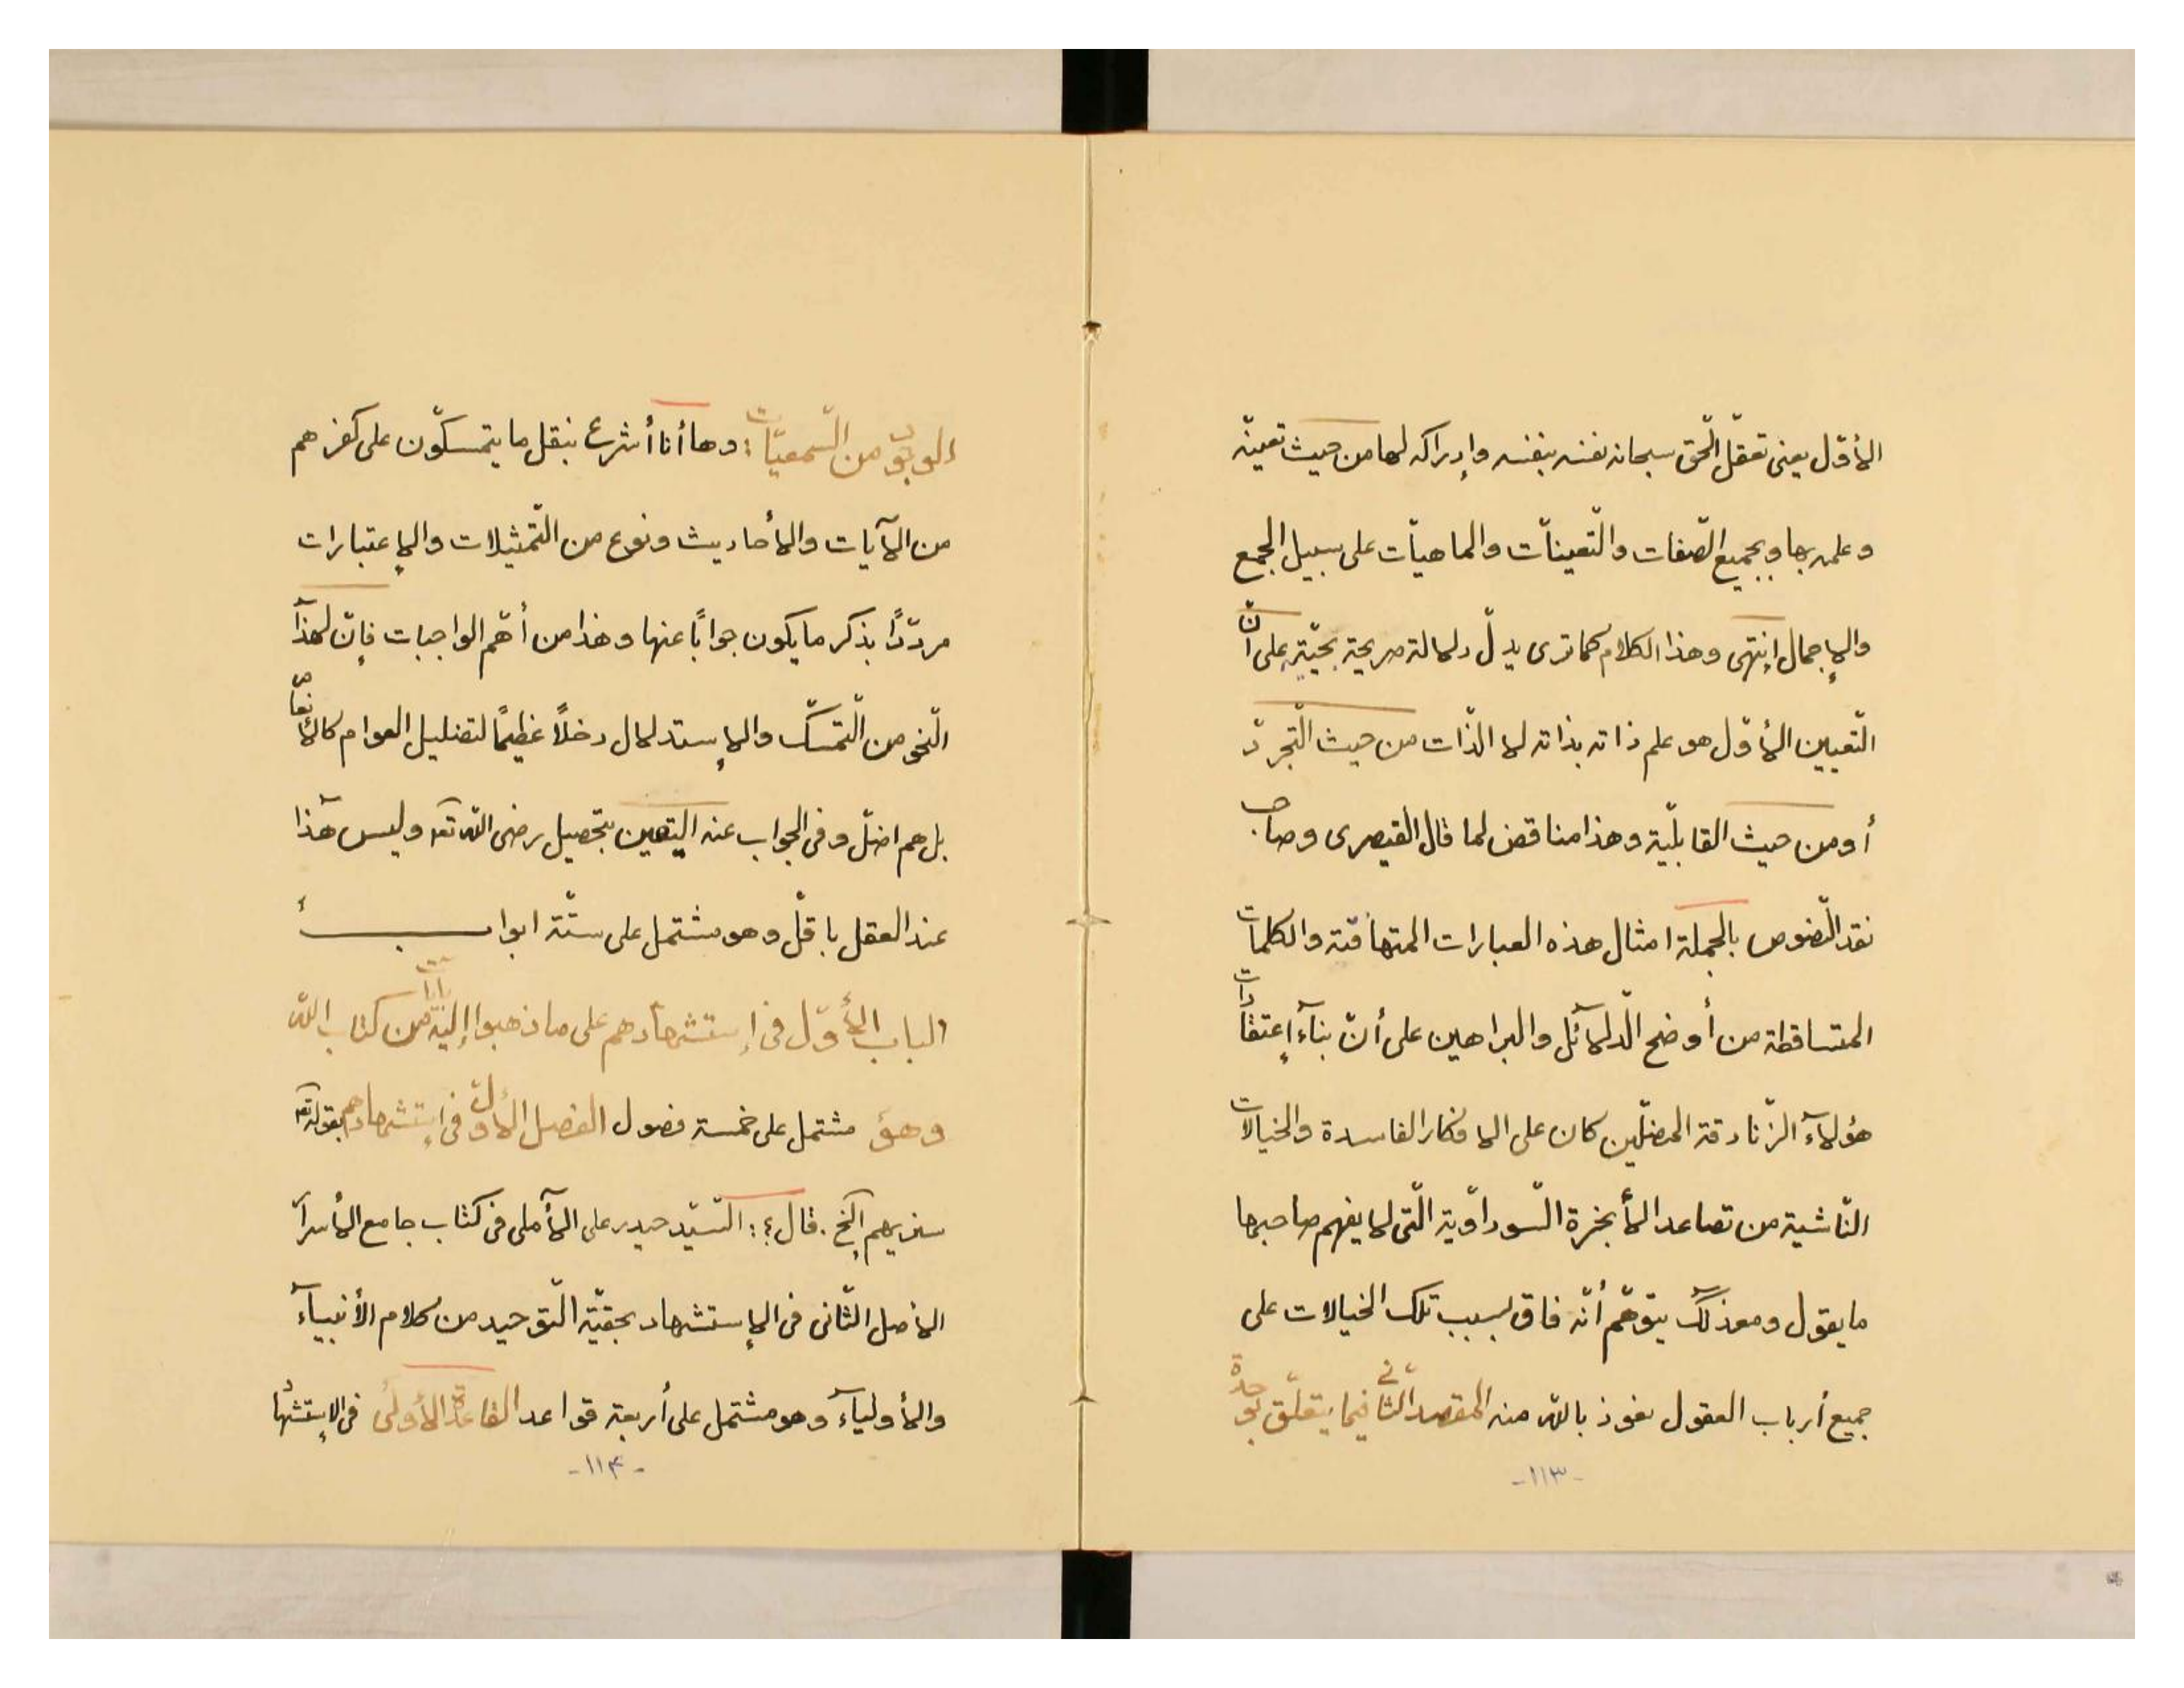 الأوّل يعنى تعقّل الحّق سبحانه نفسه بنفسه وإدراكه لها من حيث تعينّه
وعلمه بها وبجميع الصّفات والتّعينّات والماهيّات على سبيل الجمع
والإجمال إنتهى وهذا الكلام كما ترى يدلّ دلالة صريحة على أنّ
التّعيين الأوّل هو علم ذاته بذاته لا الذّات من حيث التّجردّ
أو من حيث القابليّة وهذا مناقض لما قال القيصرى وصاحب
نقد النّصوص بالجملة امثال هذه العبارات المتهافتة والكلمات
المتساقطة من أوضح الّدلآئل والبراهين على أنّ بنآء إعتقادات
هؤلآء الزّنادقة المضلّين كان على الافكار الفاسدة والخيالات
النّاشية من تصاعد الأبخرة السّوداوّية الّتى لا يفهم صاحبها
ما يقول ومع ذلك يتوهّم أنّه فاق بسبب تلك الخيالات على
جميع أرباب العقول نعوذ بالله منه المقصد الثّانى فيما يتعلّق بوحدة
-١١٣-
الوجود من السّمعيّات: وها أنا أشرع بنقل ما يتمسكّون على كفرهم
من الآيات والأحاديث ونوع من التّمثيلات والإعتبارات
مردّدًا بذكر ما يكون جوابًا عنها وهذا من أهّم الواجبات فإنّ لهذا
النّحو من التّمسّك والإستدلال دخلاً عظيمًا لتضليل العوام كالأنعام
بل هم اضلّ وفى الجواب عنه اليقين بتحصيل رضى الله تعه وليس هذا
عند العقل باقلّ وهو مشتمل على ستّة ابواب
الباب الأوّل فى إستشهادهم على ما ذهبوا إليه من كتاب الله
وهو مشتمل على خمسة فصول الفصل الأوّل فى إستشهادهم بقوله تعه
سنريهم إلخ. قال: السّيّد حيدر على الآملى فى كتاب جامع الأسرار
الاصل الثّانى فى الإستشهاد بحقيّة التّوحيد من كلام الأنبيآء
والأوليآء وهو مشتمل على أربعة قواعد القاعدة الأولى فى الإستشهاد
-١١۴-